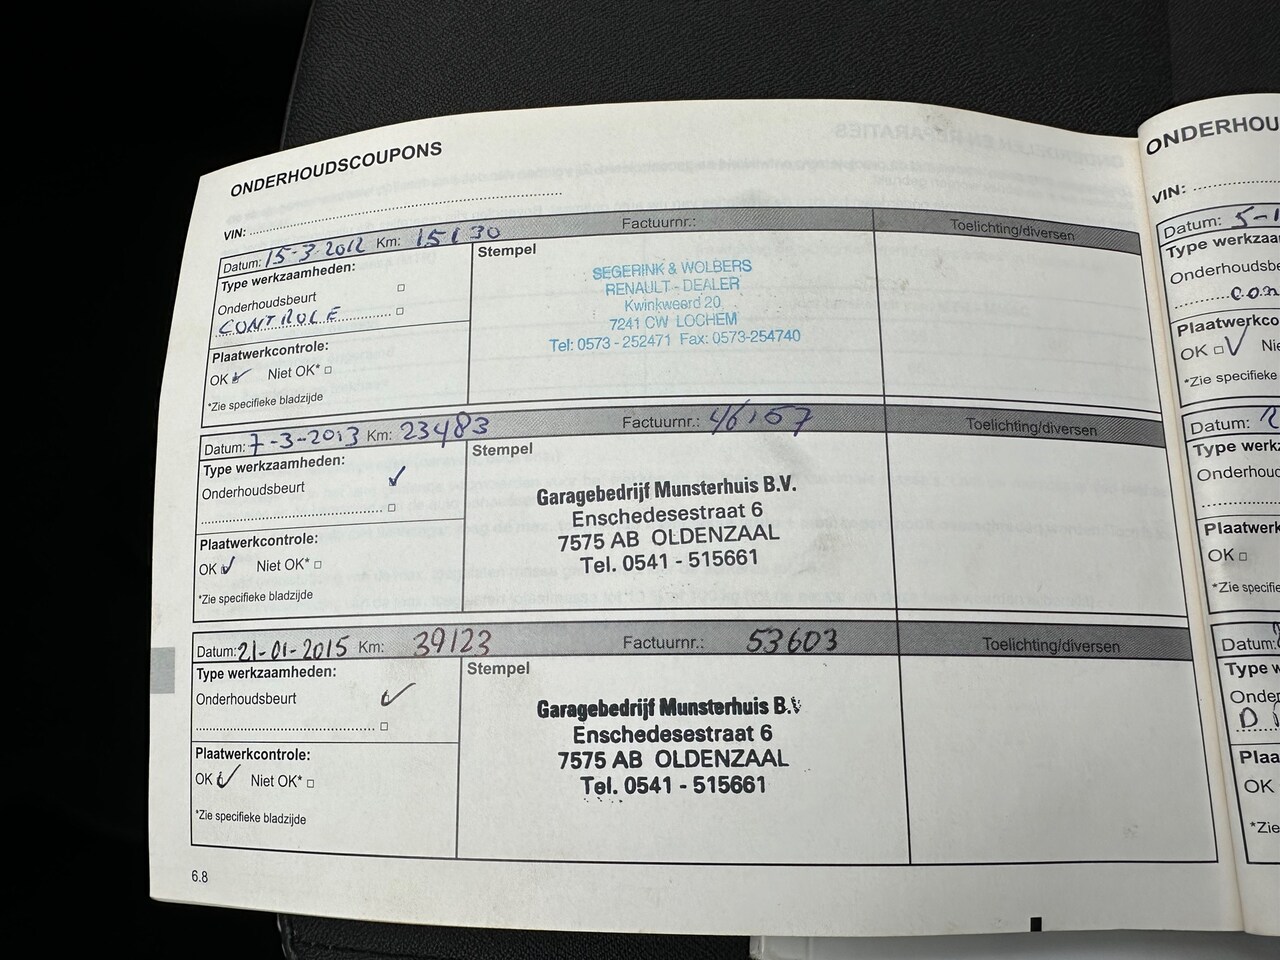 ONDERHOUDSCOUPONS
VIN:
Datum: 15-3-2012 Km: 15130 Factuurnr.: Toelichting/diversen
Type werkzaamheden:
Onderhoudsbeurt
CONTROLE
Plaatwerkcontrole:
OK Niet OK*
*Zie specifieke bladzijde
Stempel
SEGERINK & WOLBERS
RENAULT - DEALER
Kwinkweerd 20
7241 CW LOCHEM
Tel: 0573 - 252471 Fax: 0573-254740
Datum: 7-3-2013 Km: 23483 Factuurnr.: 46157 Toelichting/diversen
Type werkzaamheden:
Onderhoudsbeurt
Plaatwerkcontrole:
OK Niet OK*
*Zie specifieke bladzijde
Stempel
Garagebedrijf Munsterhuis B.V.
Enschedesestraat 6
7575 AB OLDENZAAL
Tel. 0541 - 515661
Datum: 21-01-2015 Km: 39123 Factuurnr.: 53603 Toelichting/diversen
Type werkzaamheden:
Onderhoudsbeurt
Plaatwerkcontrole:
OK Niet OK*
*Zie specifieke bladzijde
Stempel
Garagebedrijf Munsterhuis B.V
Enschedesestraat 6
7575 AB OLDENZAAL
Tel. 0541 - 515661
6.8
ONDERHOU
VIN:
Datum: 5-1
Type werkzaa
Onderhoudsbe
con
Plaatwerkco
OK Nie
*Zie specifieke
Datum:
Type werkz
Onderhoud
Plaatwerk
OK
*Zie specifi
Datum:
Type w
Onder
Plaa
OK
*Zie